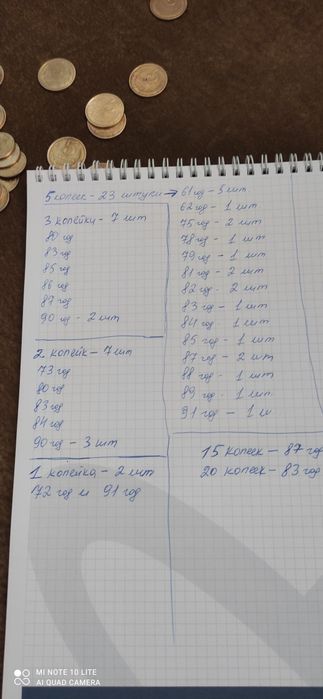 5 копеек - 23 штуки → 61 год - 5 шт.
62 год - 1 шт
75 год - 2 шт
78 год - 1 шт
79 год - 1 шт
81 год - 2 шт
82 год - 2 шт
83 год - 1 шт
84 год - 1 шт
85 год - 1 шт
87 год - 2 шт
88 год - 1 шт
89 год - 1 шт.
91 год - 1 ш
3 копейки - 7 шт
80 год
83 год
85 год
86 год
87 год
90 год - 2 шт
2 копейк - 7 шт
73 год
80 год
83 год
84 год
90 год - 3 шт
1 копейка - 2 шт
72 год и 91 год
15 копеек - 87 год
20 копеек - 83 год
MI NOTE 10 LITE
AI QUAD CAMERA